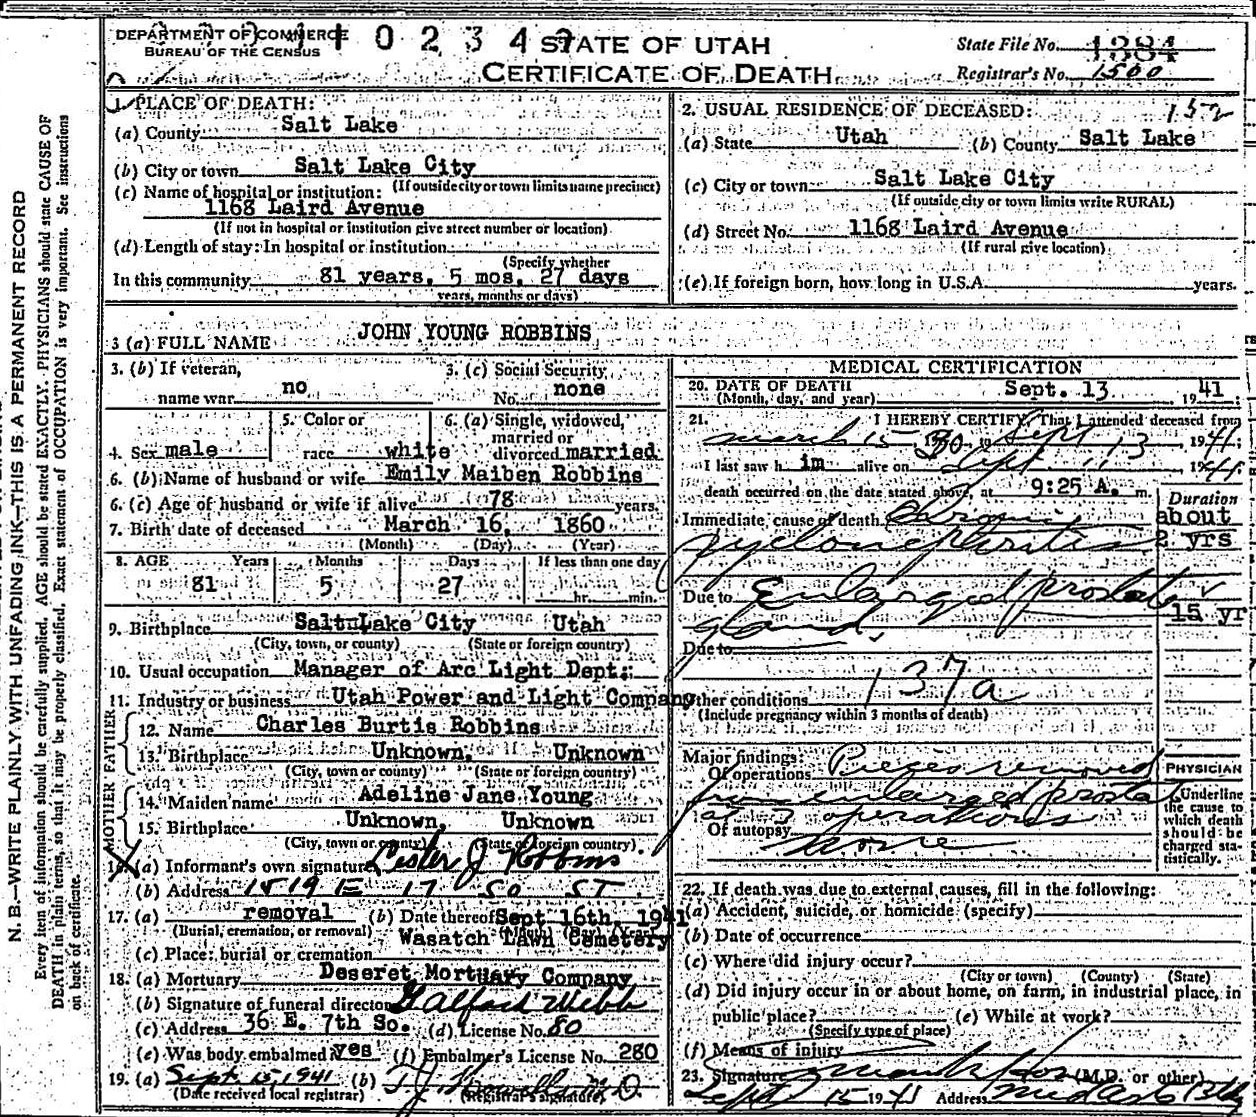 N. B.—WRITE PLAINLY WITH UNFADING INK—THIS IS A PERMANENT RECORD
Every item of information should be carefully supplied. AGE should be stated EXACTLY. PHYSICIANS should state CAUSE OF
DEATH in plain terms, so that it may be properly classified. Exact statement of OCCUPATION is very important. See instructions
on back of certificate.
DEPARTMENT OF COMMERCE
BUREAU OF THE CENSUS
1 0 2 3 4
STATE OF UTAH
CERTIFICATE OF DEATH
State File No. 1384
Registrar's No. 1500
1. PLACE OF DEATH:
(a) County Salt Lake
(b) City or town Salt Lake City
(If outside city or town limits name precinct)
(c) Name of hospital or institution:
1168 Laird Avenue
(If not in hospital or institution give street number or location)
(d) Length of stay: In hospital or institution
(Specify whether
In this community 81 years, 5 mos. 27 days
years, months or days)
2. USUAL RESIDENCE OF DECEASED: 152
(a) State Utah (b) County Salt Lake
(c) City or town Salt Lake City
(If outside city or town limits write RURAL)
(d) Street No. 1168 Laird Avenue
(If rural give location)
(e) If foreign born, how long in U.S.A. years.
3 (a) FULL NAME JOHN YOUNG ROBBINS
3. (b) If veteran, name war no
3. (c) Social Security No. none
4. Sex male
5. Color or race white
6. (a) Single, widowed, married or divorced married
6. (b) Name of husband or wife Emily Maiben Robbins
6. (c) Age of husband or wife if alive 78 years.
7. Birth date of deceased March 16, 1860
(Month) (Day) (Year)
8. AGE Years Months Days If less than one day
81 5 27 hr. min.
9. Birthplace Salt Lake City Utah
(City, town, or county) (State or foreign country)
10. Usual occupation Manager of Arc Light Dept.
11. Industry or business Utah Power and Light Company
FATHER
12. Name Charles Burtis Robbins
13. Birthplace Unknown, Unknown
(City, town or county) (State or foreign country)
MOTHER
14. Maiden name Adeline Jane Young
15. Birthplace Unknown, Unknown
(City, town or county) (State or foreign country)
16. (a) Informant's own signature Lester J Robbins
(b) Address 1519 E 17 SO ST.
17. (a) removal (b) Date thereof Sept 16th, 1941
(Burial, cremation, or removal) (Month) (Day) (Year)
(c) Place: burial or cremation Wasatch Lawn Cemetery
18. (a) Mortuary Deseret Mortuary Company
(b) Signature of funeral director Galford Webb
(c) Address 36 E. 7th So. (d) License No. 80
(e) Was body embalmed? yes (f) Embalmer's License No. 280
19. (a) Sept. 15, 1941 (b) T. J. Howells M.D.
(Date received local registrar) (Registrar's signature)
MEDICAL CERTIFICATION
20. DATE OF DEATH Sept. 13 1941
(Month, day, and year)
21. I HEREBY CERTIFY, That I attended deceased from
March 15 30, to Sept 13, 1941
I last saw him alive on Sept 13 1941
death occurred on the date stated above, at 9:25 A. m.
Duration
Immediate cause of death Chronic about
pyelonephritis 2 yrs
Due to Enlarged prostate
gland. 15 yr
Due to
Other conditions 137a
(Include pregnancy within 3 months of death)
Major findings:
Of operations Pieces removed
from enlarged prostate
at 3 operations
Of autopsy none
PHYSICIAN
Underline
the cause to
which death
should be
charged sta-
tistically.
22. If death was due to external causes, fill in the following:
(a) Accident, suicide, or homicide (specify)
(b) Date of occurrence
(c) Where did injury occur?
(City or town) (County) (State)
(d) Did injury occur in or about home, on farm, in industrial place, in
public place? (e) While at work?
(Specify type of place)
(f) Means of injury
23. Signature (M.D. or other)
Sept 15 1941 Address